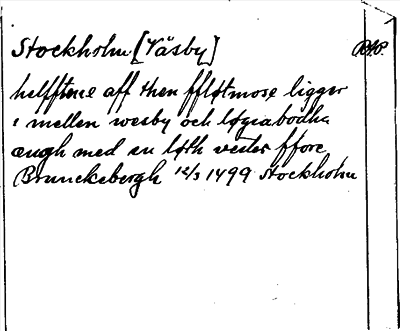 Stockholm [Väsby]
helfftene aff then ffløtmose ligger
i mellen wesby och løgiabodha
ængh med en løth vester ffore
Brunckebergh 12/3 1499 Stockholm